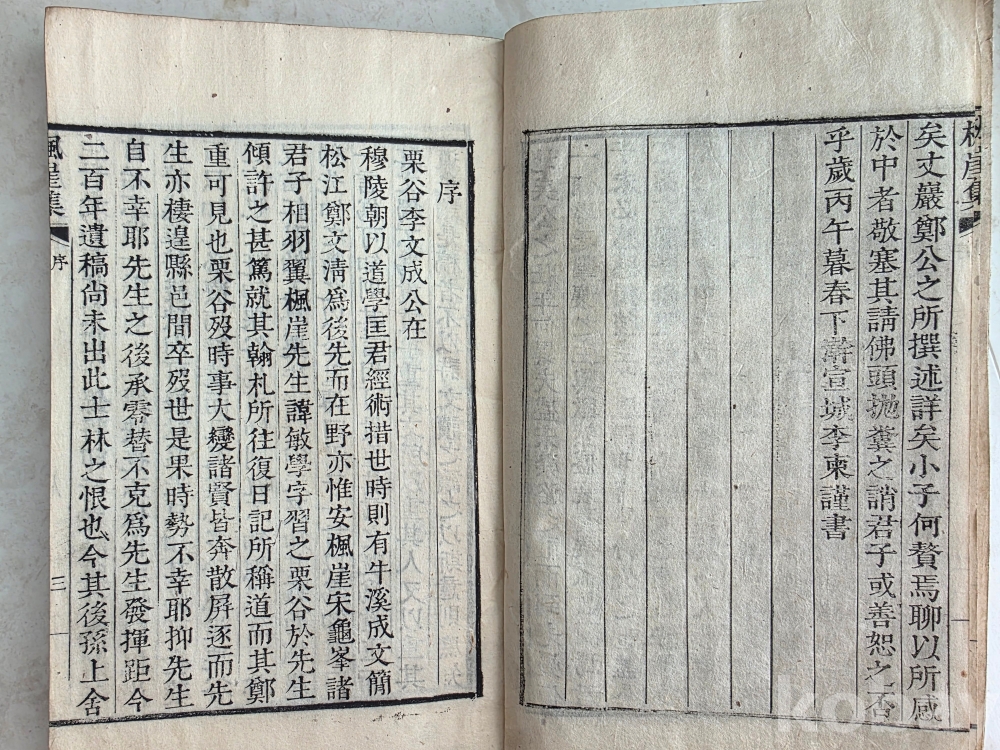 楓崖集
矣丈巖鄭公之所撰述詳矣小子何贅焉聊以所感
於中者敬塞其請佛頭抛糞之誚君子或善恕之否
乎歲丙午暮春下澣宣城李柬謹書
序
栗谷李文成公在
穆陵朝以道學匡君經術措世時則有牛溪成文簡
松江鄭文淸爲後先而在野亦惟安楓崖宋龜峯諸
君子相羽翼楓崖先生諱敏學字習之栗谷於先生
傾許之甚篤就其翰札所往復日記所稱道而其鄭
重可見也栗谷歿時事大變諸賢皆奔散屛逐而先
生亦棲遑縣邑間卒歿世是果時勢不幸耶抑先生
自不幸耶先生之後承零替不克爲先生發揮距今
二百年遺稿尙未出此士林之恨也今其後孫上舍
楓崖集
序
三